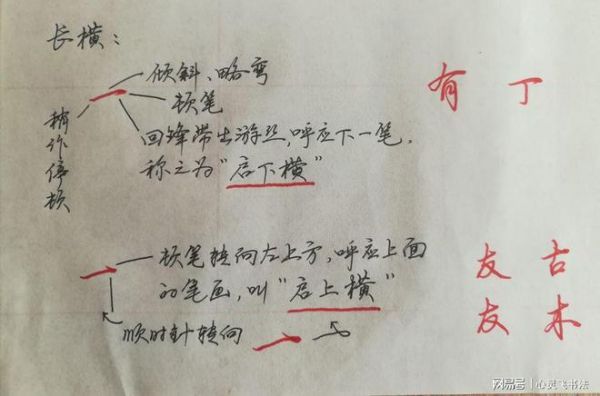 长横：
倾斜、略弯
顿笔
稍许停顿
回锋带出游丝，呼应下一笔，
称之为“启下横”
有 丁
顿笔转向左上方，呼应上面
的笔画，叫“启上横”
顺时针转向
友 古
友 木
网易号 | 心灵飞书法